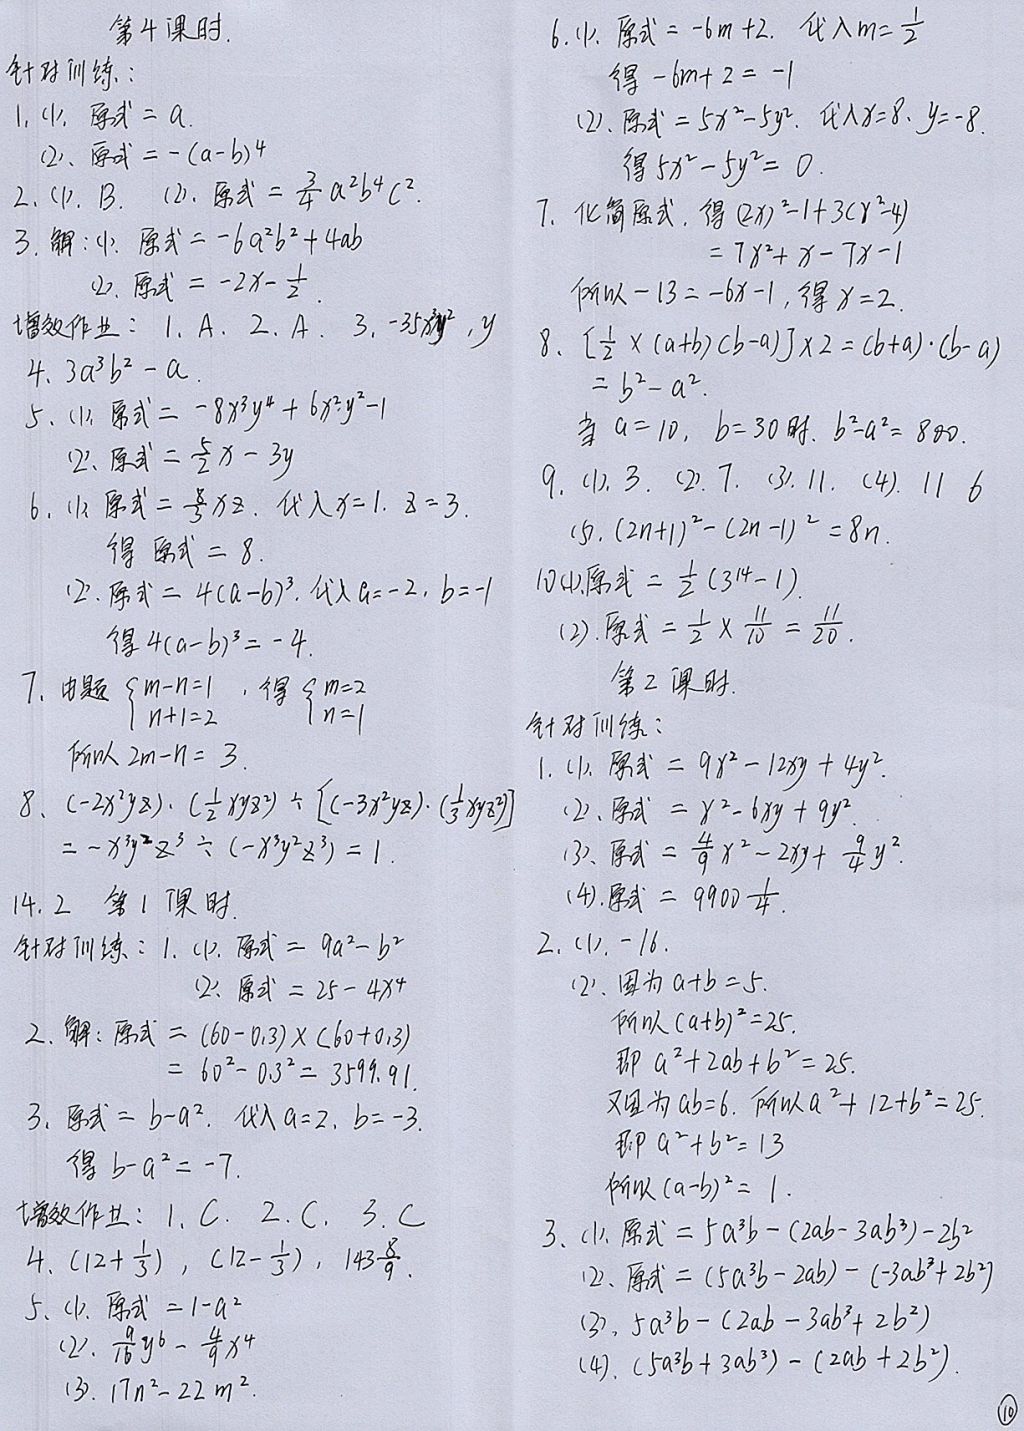 第4课时.
针对训练:
1. (1). 原式 = a.
(2). 原式 = -(a-b)⁴
2. (1). B. (2). 原式 = 3/4 a²b⁴c².
3. 解: (1). 原式 = -6a²b²+4ab
(2). 原式 = -2x-1/2.
增效作业: 1. A. 2. A. 3. -35x³y², y
4. 3a³b²-a.
5. (1). 原式 = -8x³y⁴+6x²y²-1
(2). 原式 = 5/2 x-3y
6. (1). 原式 = 8/3 xz. 代入x=1. z=3.
得 原式 = 8.
(2). 原式 = 4(a-b)³. 代入a=-2, b=-1
得4(a-b)³=-4.
7. 由题 { m-n=1 , 得 { m=2
n+1=2 n=1
所以 2m-n = 3.
8. (-2x²yz)·(1/2 xyz²)÷[(-3x²yz)·(1/3 xyz²)]
= -x³y²z³÷(-x³y²z³) = 1.
14.2 第1课时.
针对训练: 1. (1). 原式 = 9a²-b²
(2). 原式 = 25-4x⁴
2. 解: 原式 = (60-0.3)×(60+0.3)
= 60²-0.3² = 3599.91.
3. 原式 = b-a². 代入a=2, b=-3.
得 b-a² = -7.
增效作业: 1. C. 2. C. 3. C
4. (12+1/3), (12-1/3), 143 8/9.
5. (1). 原式 = 1-a²
(2). 9/16 y⁶-4/9 x⁴
(3). 17n²-22m².
6. (1). 原式 = -6m+2. 代入m=1/2
得 -6m+2 = -1
(2). 原式 = 5x²-5y². 代入x=8, y=-8.
得5x²-5y² = 0.
7. 化简原式, 得(2x)²-1+3(x²-4)
= 7x²+x-7x-1
所以-13=-6x-1, 得x=2.
8. [1/2×(a+b)(b-a)]×2 = (b+a)·(b-a)
= b²-a².
当a=10, b=30时. b²-a²=800.
9. (1). 3. (2). 7. (3). 11. (4). 11 6
(5). (2n+1)²-(2n-1)² = 8n.
10(1).原式 = 1/2(3¹⁴-1).
(2).原式 = 1/2×11/10 = 11/20.
第2课时.
针对训练:
1. (1). 原式 = 9x²-12xy+4y².
(2). 原式 = x²-6xy+9y².
(3). 原式 = 4/9 x²-2xy+9/4 y².
(4).原式 = 9900 1/4.
2. (1). -16.
(2). 因为a+b=5.
所以(a+b)²=25.
即 a²+2ab+b²=25.
又因为ab=6. 所以a²+12+b²=25.
即 a²+b²=13
所以(a-b)²=1.
3. (1). 原式 = 5a³b-(2ab-3ab³)-2b²
(2). 原式 = (5a³b-2ab)-(-3ab³+2b²)
(3). 5a³b-(2ab-3ab³+2b²)
(4). (5a³b+3ab³)-(2ab+2b²).
⑩